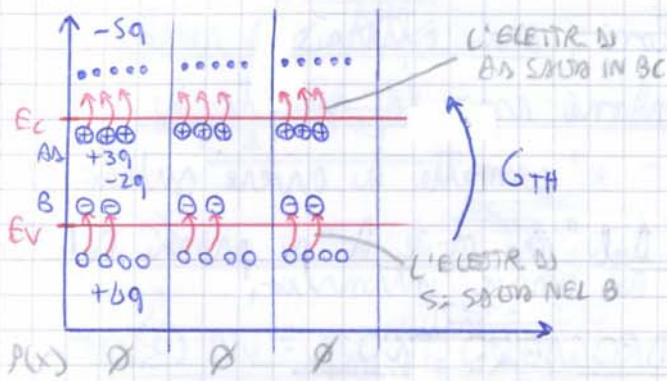 -5q
L'ELETTR DI
As SALTA IN BC
Ec
As
+3q
-2q
B
GTH
Ev
L'ELETTR DI
Si SALTA NEL B
+4q
ρ(x) ∅ ∅ ∅